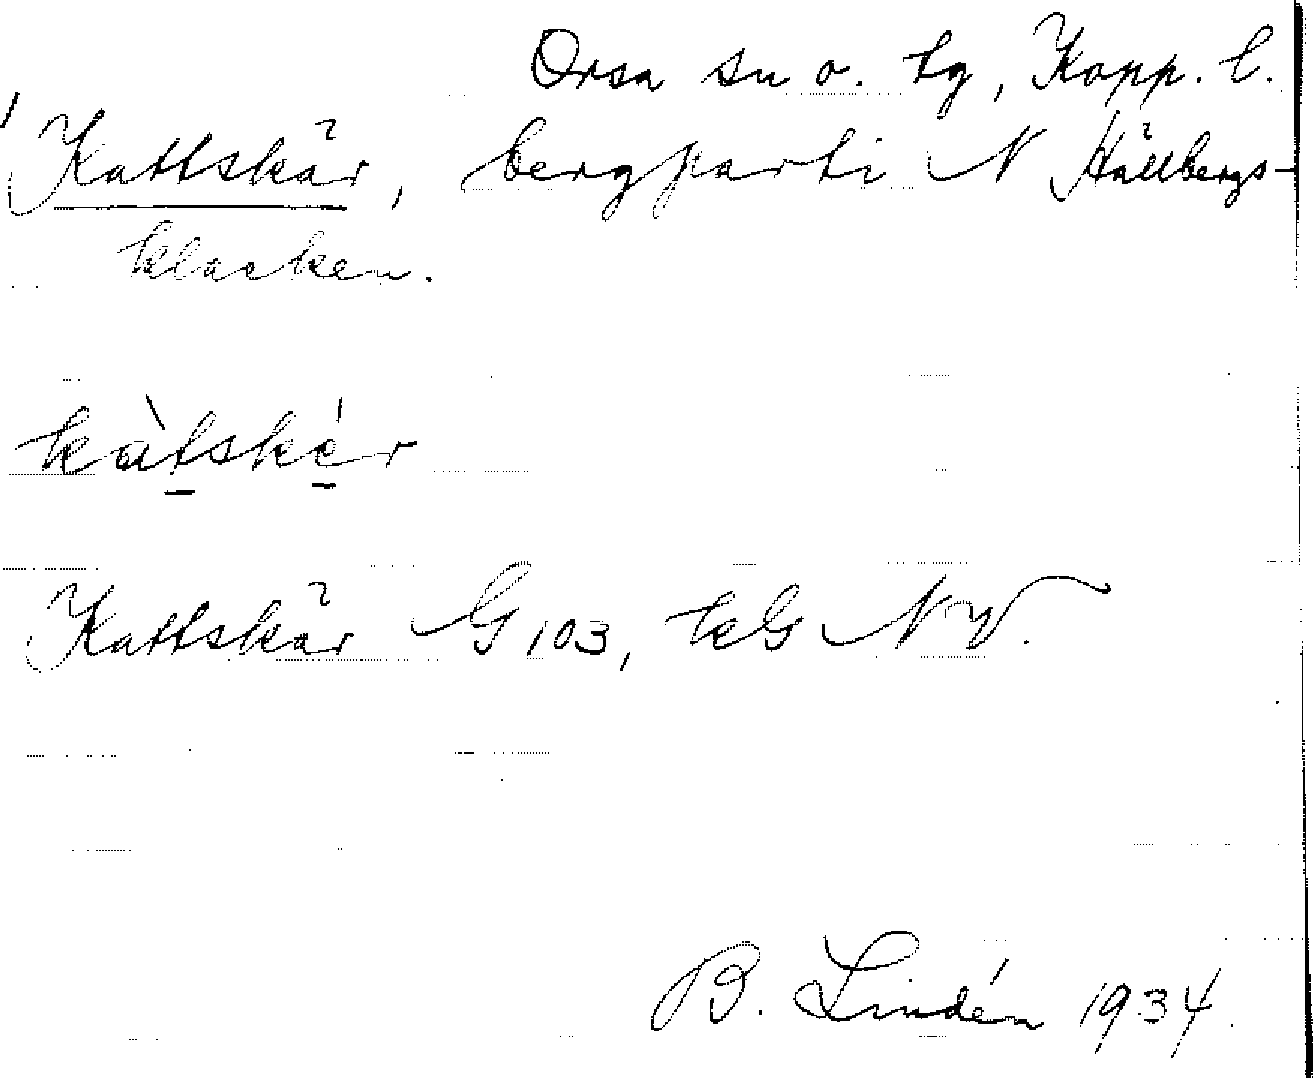 Orsa sn o. tg, Kopp. l.
Kattskär, bergparti N Hällbergs-
klacken.
kàtskér
Kattskär G 103, kG NV.
B. Lindén 1934.